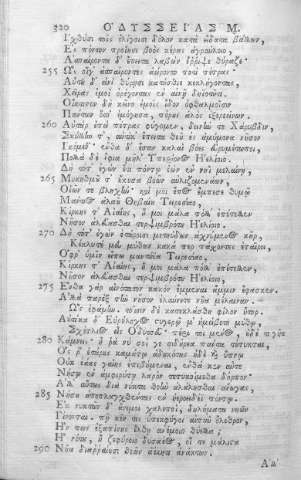 320 ΟΔΥΣΣΕΙΑΣ Μ.
Ἰχθύσι τοῖς ὀλίγοισι δόλον κατὰ εἴδατα βάλλων,
Ἐς πόντον προΐησι βοὸς κέρας ἀγραύλοιο,
Ἀσπαίροντα δ' ἔπειτα λαβὼν ἔρριψε θύραζε·
255 Ὣς οἵγ' ἀσπαίροντες ἀείροντο ποτὶ πέτρας·
Αὐτοῦ δ' εἰνὶ θύρῃσι κατήσθιε κεκλήγοντας,
Χεῖρας ἐμοὶ ὀρέγοντας ἐν αἰνῇ δηϊοτῆτι.
Οἴκτιστον δὴ κεῖνο ἐμοῖς ἴδον ὀφθαλμοῖσι
Πάντων ὅσσ' ἐμόγησα, πόρους ἁλὸς ἐξερεείνων.
260 Αὐτὰρ ἐπεὶ πέτρας φύγομεν, δεινήν τε Χάρυβδιν,
Σκύλλην τ', αὐτίκ' ἔπειτα θεοῦ ἐς ἀμύμονα νῆσον
Ἱκόμεθ'· ἔνθα δ' ἔσαν καλαὶ βόες εὐρυμέτωποι,
Πολλὰ δὲ ἴφια μῆλ' Ὑπερίονος Ἠελίοιο.
Δὴ τότ' ἐγὼν ἔτι πόντῳ ἐὼν ἐν νηῒ μελαίνῃ,
265 Μυκηθμοῦ τ' ἤκουσα βοῶν αὐλιζομενάων,
Οἰῶν τε βληχήν· καί μοι ἔπος ἔμπεσε θυμῷ
Μάντιος ἀλαοῦ Θηβαίου Τειρεσίαο,
Κίρκης τ' Αἰαίης, ἥ μοι μάλα πόλλ' ἐπέτελλε
Νῆσον ἀλεύασθαι τερψιμβρότου Ἠελίοιο.
270 Δὴ τότ' ἐγὼν ἑτάροισι μετηύδων ἀχνύμενος κῆρ,
Κέκλυτέ μευ μύθων κακά περ πάσχοντες ἑταῖροι,
Ὄφρ' ὑμῖν εἴπω μαντήϊα Τειρεσίαο,
Κίρκης τ' Αἰαίης, ἥ μοι μάλα πόλλ' ἐπέτελλε
Νῆσον ἀλεύασθαι τερψιμβρότου Ἠελίοιο.
275 Ἔνθα γὰρ αἰνότατον κακὸν ἔμμεναι ἄμμιν ἔφασκεν.
Ἀλλὰ παρὲξ τὴν νῆσον ἐλαύνετε νῆα μέλαιναν.
Ὣς ἐφάμην· τοῖσιν δὲ κατεκλάσθη φίλον ἦτορ.
Αὐτίκα δ' Εὐρύλοχος στυγερῷ μ' ἠμείβετο μύθῳ,
Σχέτλιός εἰς Ὀδυσσεῦ· πέρι τοι μένος, οὐδέ τι γυῖα
280 Κάμνεις· ἦ ῥά νυ σοί γε σιδήρεα πάντα τέτυκται,
Ὅς ῥ' ἑτάρους καμάτῳ ἀδδηκότας ἠδὲ καὶ ὕπνῳ
Οὐκ ἐάᾳς γαίης ἐπιβήμεναι, ἔνθα κεν αὖτε
Νήσῳ ἐν ἀμφιρύτῃ λαρὸν τετυκοίμεθα δόρπον·
Ἀλλ' αὔτως διὰ νύκτα θοὴν ἀλάλησθαι ἄνωγας,
285 Νήσου ἀποπλαγχθέντας ἐν ἠεροειδέϊ πόντῳ.
Ἐκ νυκτῶν δ' ἄνεμοι χαλεποὶ, δηλήματα νηῶν
Γίνονται. πῇ κέν τις ὑπεκφύγοι αἰπὺν ὄλεθρον,
Ἤν πως ἐξαπίνης ἔλθῃ ἀνέμοιο θύελλα;
Ἢ νότου, ἢ ζεφύροιο δυσαέος, οἵ τε μάλιστα
290 Νῆα διαρραίουσι θεῶν ἀέκητι ἀνάκτων.
Ἀλλ'